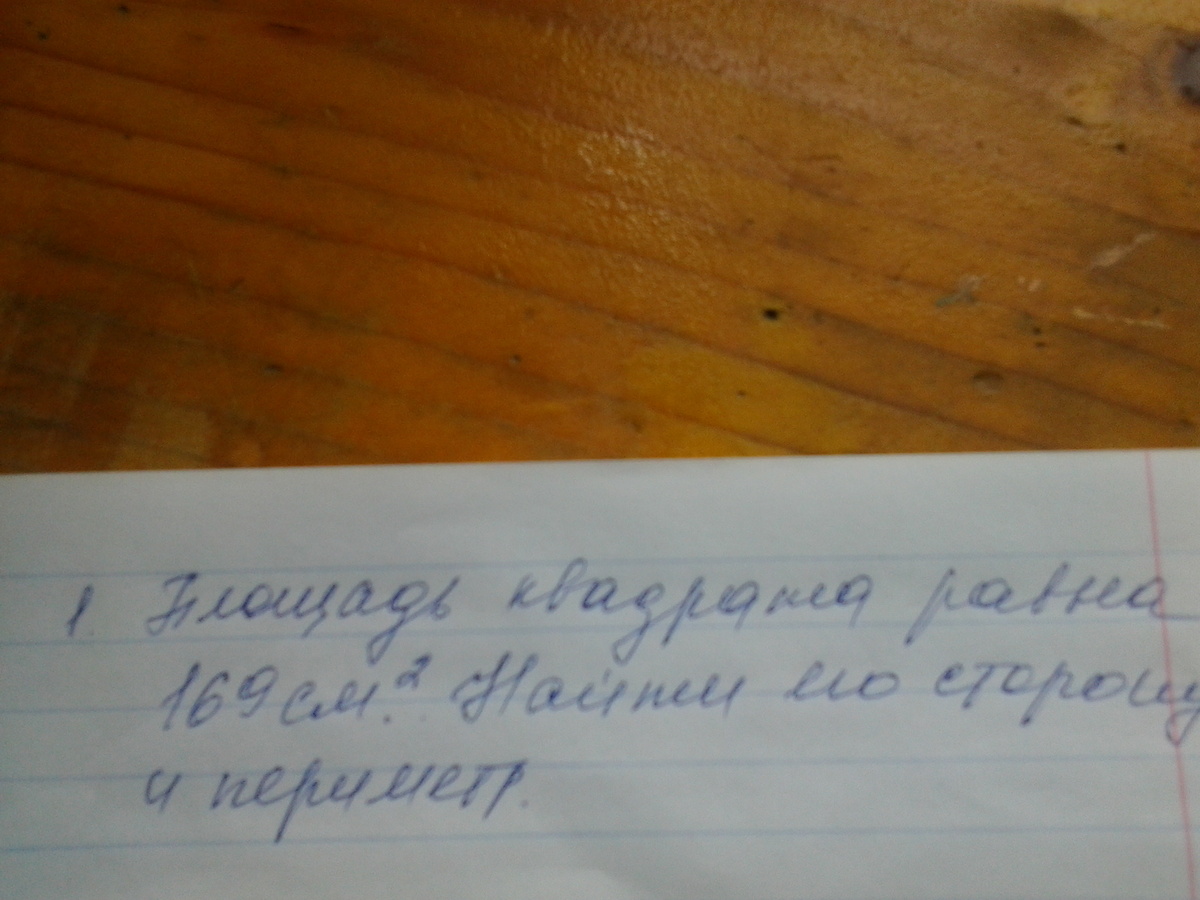 1. Площадь квадрата равна
169 см.² Найти его сторону
и периметр.